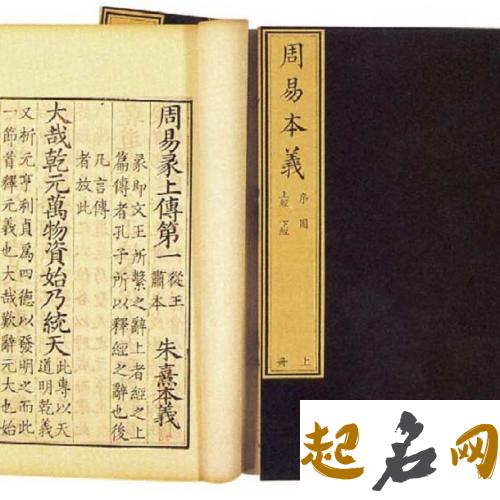 周易本義
序圖
上經 下經
上冊
周易彖上傳第一
從王
肅本
朱熹本義
彖即文王所繫之辭上者經之上
篇傳者孔子所以釋經之辭也後
凡言傳
者放此
大哉乾元萬物資始乃統天
此專以天
道明乾義
又析元亨利貞爲四德以發明之而此
一節首釋元義也大哉歎辭元大也始
起名网